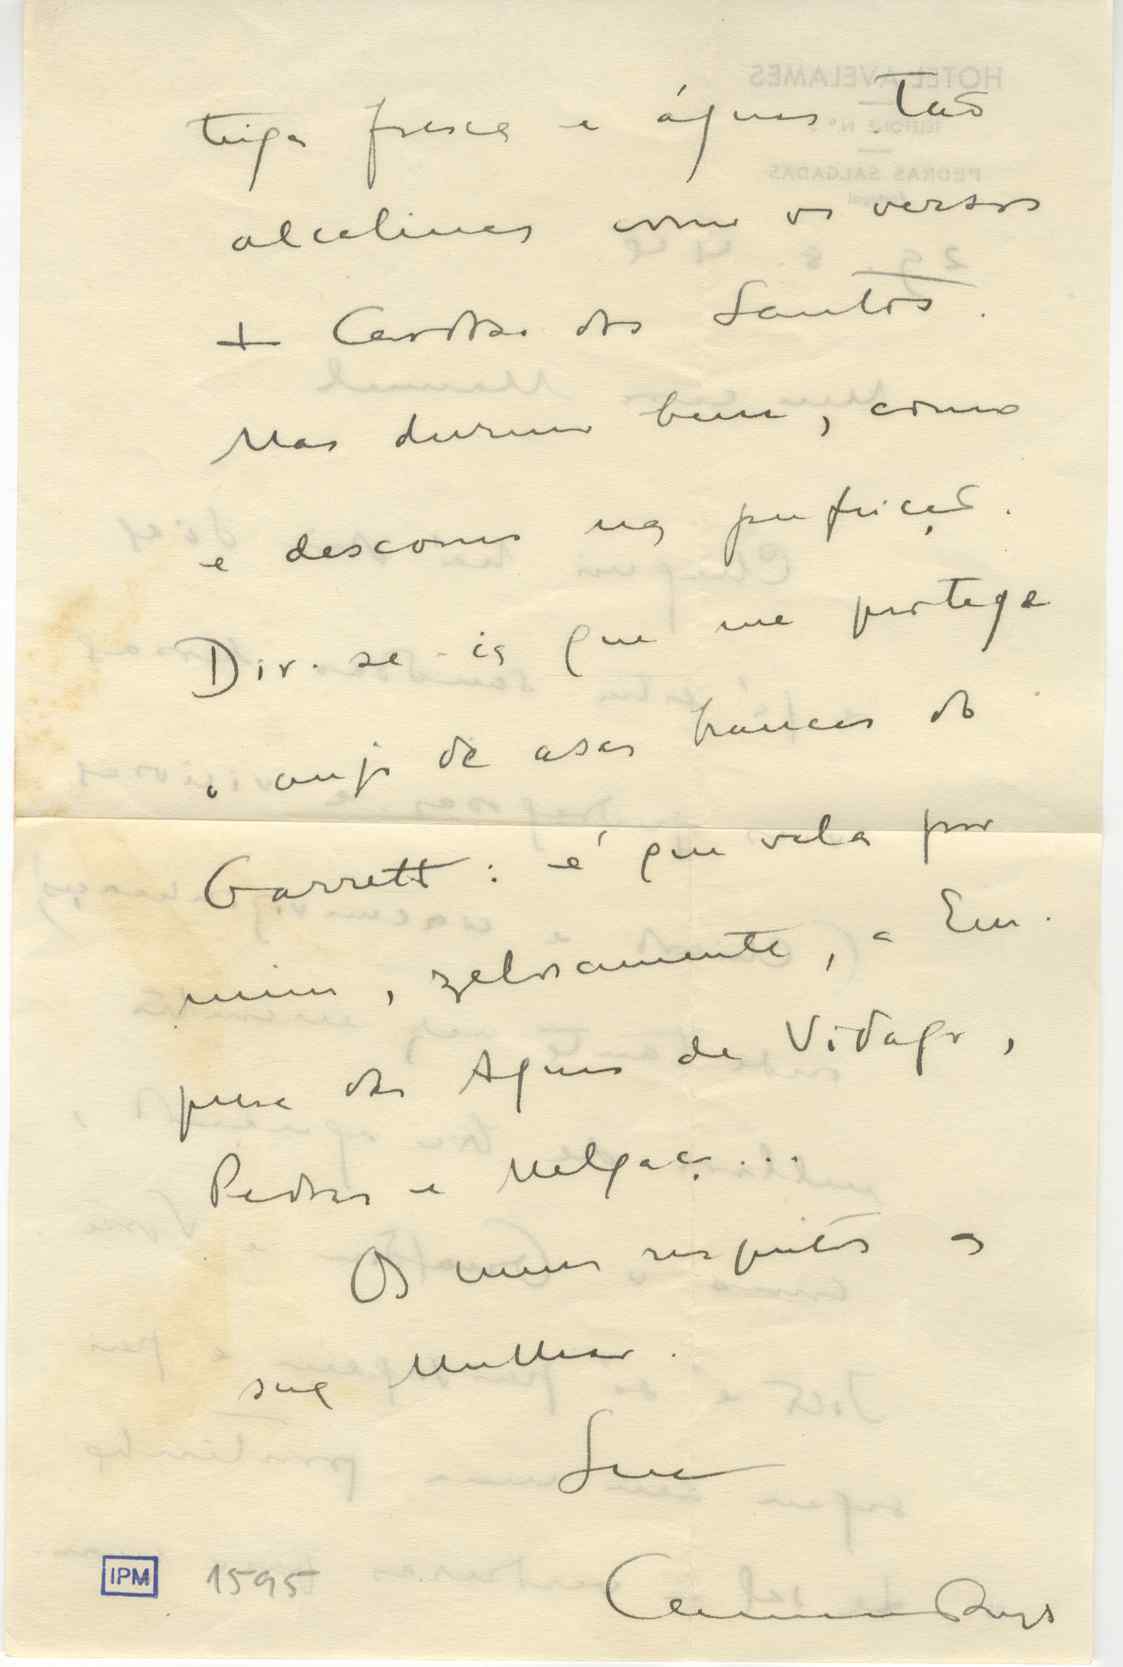 teiga fresca e águas tão
alcalinas como os versos
do Cardoso dos Santos.
Mas durmo bem, como
e descomo na perfeição.
Dir-se-ia que me protege
o anjo de asas brancas do
Garrett: é que vela por
mim, zelosamente, a Em-
presa das Aguas de Vidago,
Pedras e Melgaço...
Os meus respeitos a
sua Mulher.
Seu
IPM 1595